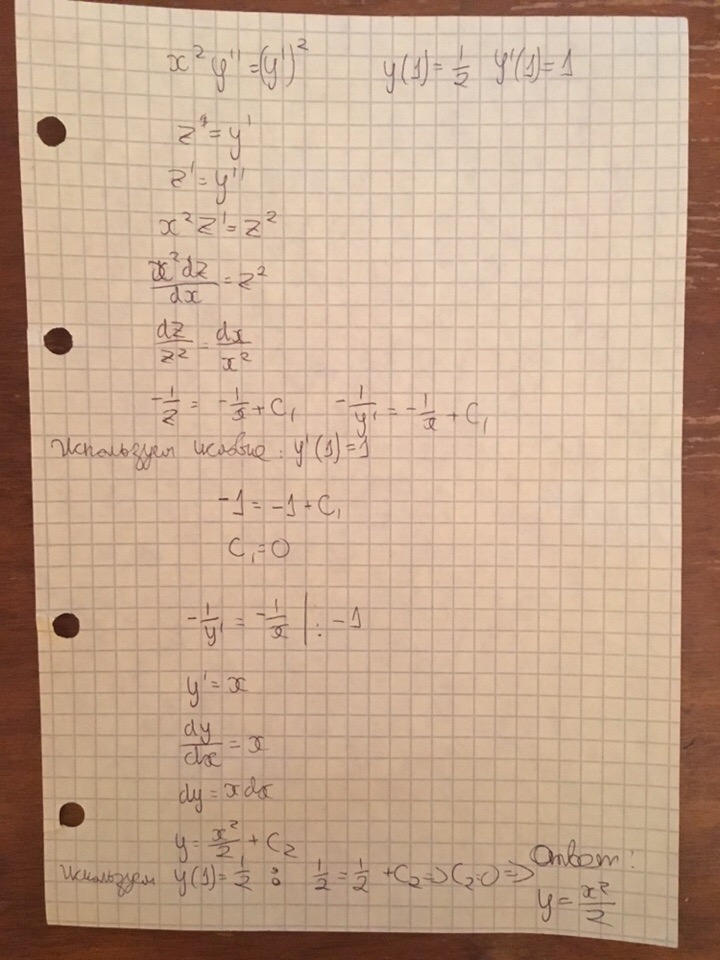 x² y'' = (y')² y(1) = 1/2 y'(1) = 1
z = y'
z' = y''
x² z' = z²
x² dz/dx = z²
dz/z² = dx/x²
-1/z = -1/x + C₁ -1/y' = -1/x + C₁
Используем условие: y'(1) = 1
-1 = -1 + C₁
C₁ = 0
-1/y' = -1/x | : -1
y' = x
dy/dx = x
dy = x dx
y = x²/2 + C₂
Используем y(1) = 1/2 : 1/2 = 1/2 + C₂ => C₂ = 0 => Ответ:
y = x²/2